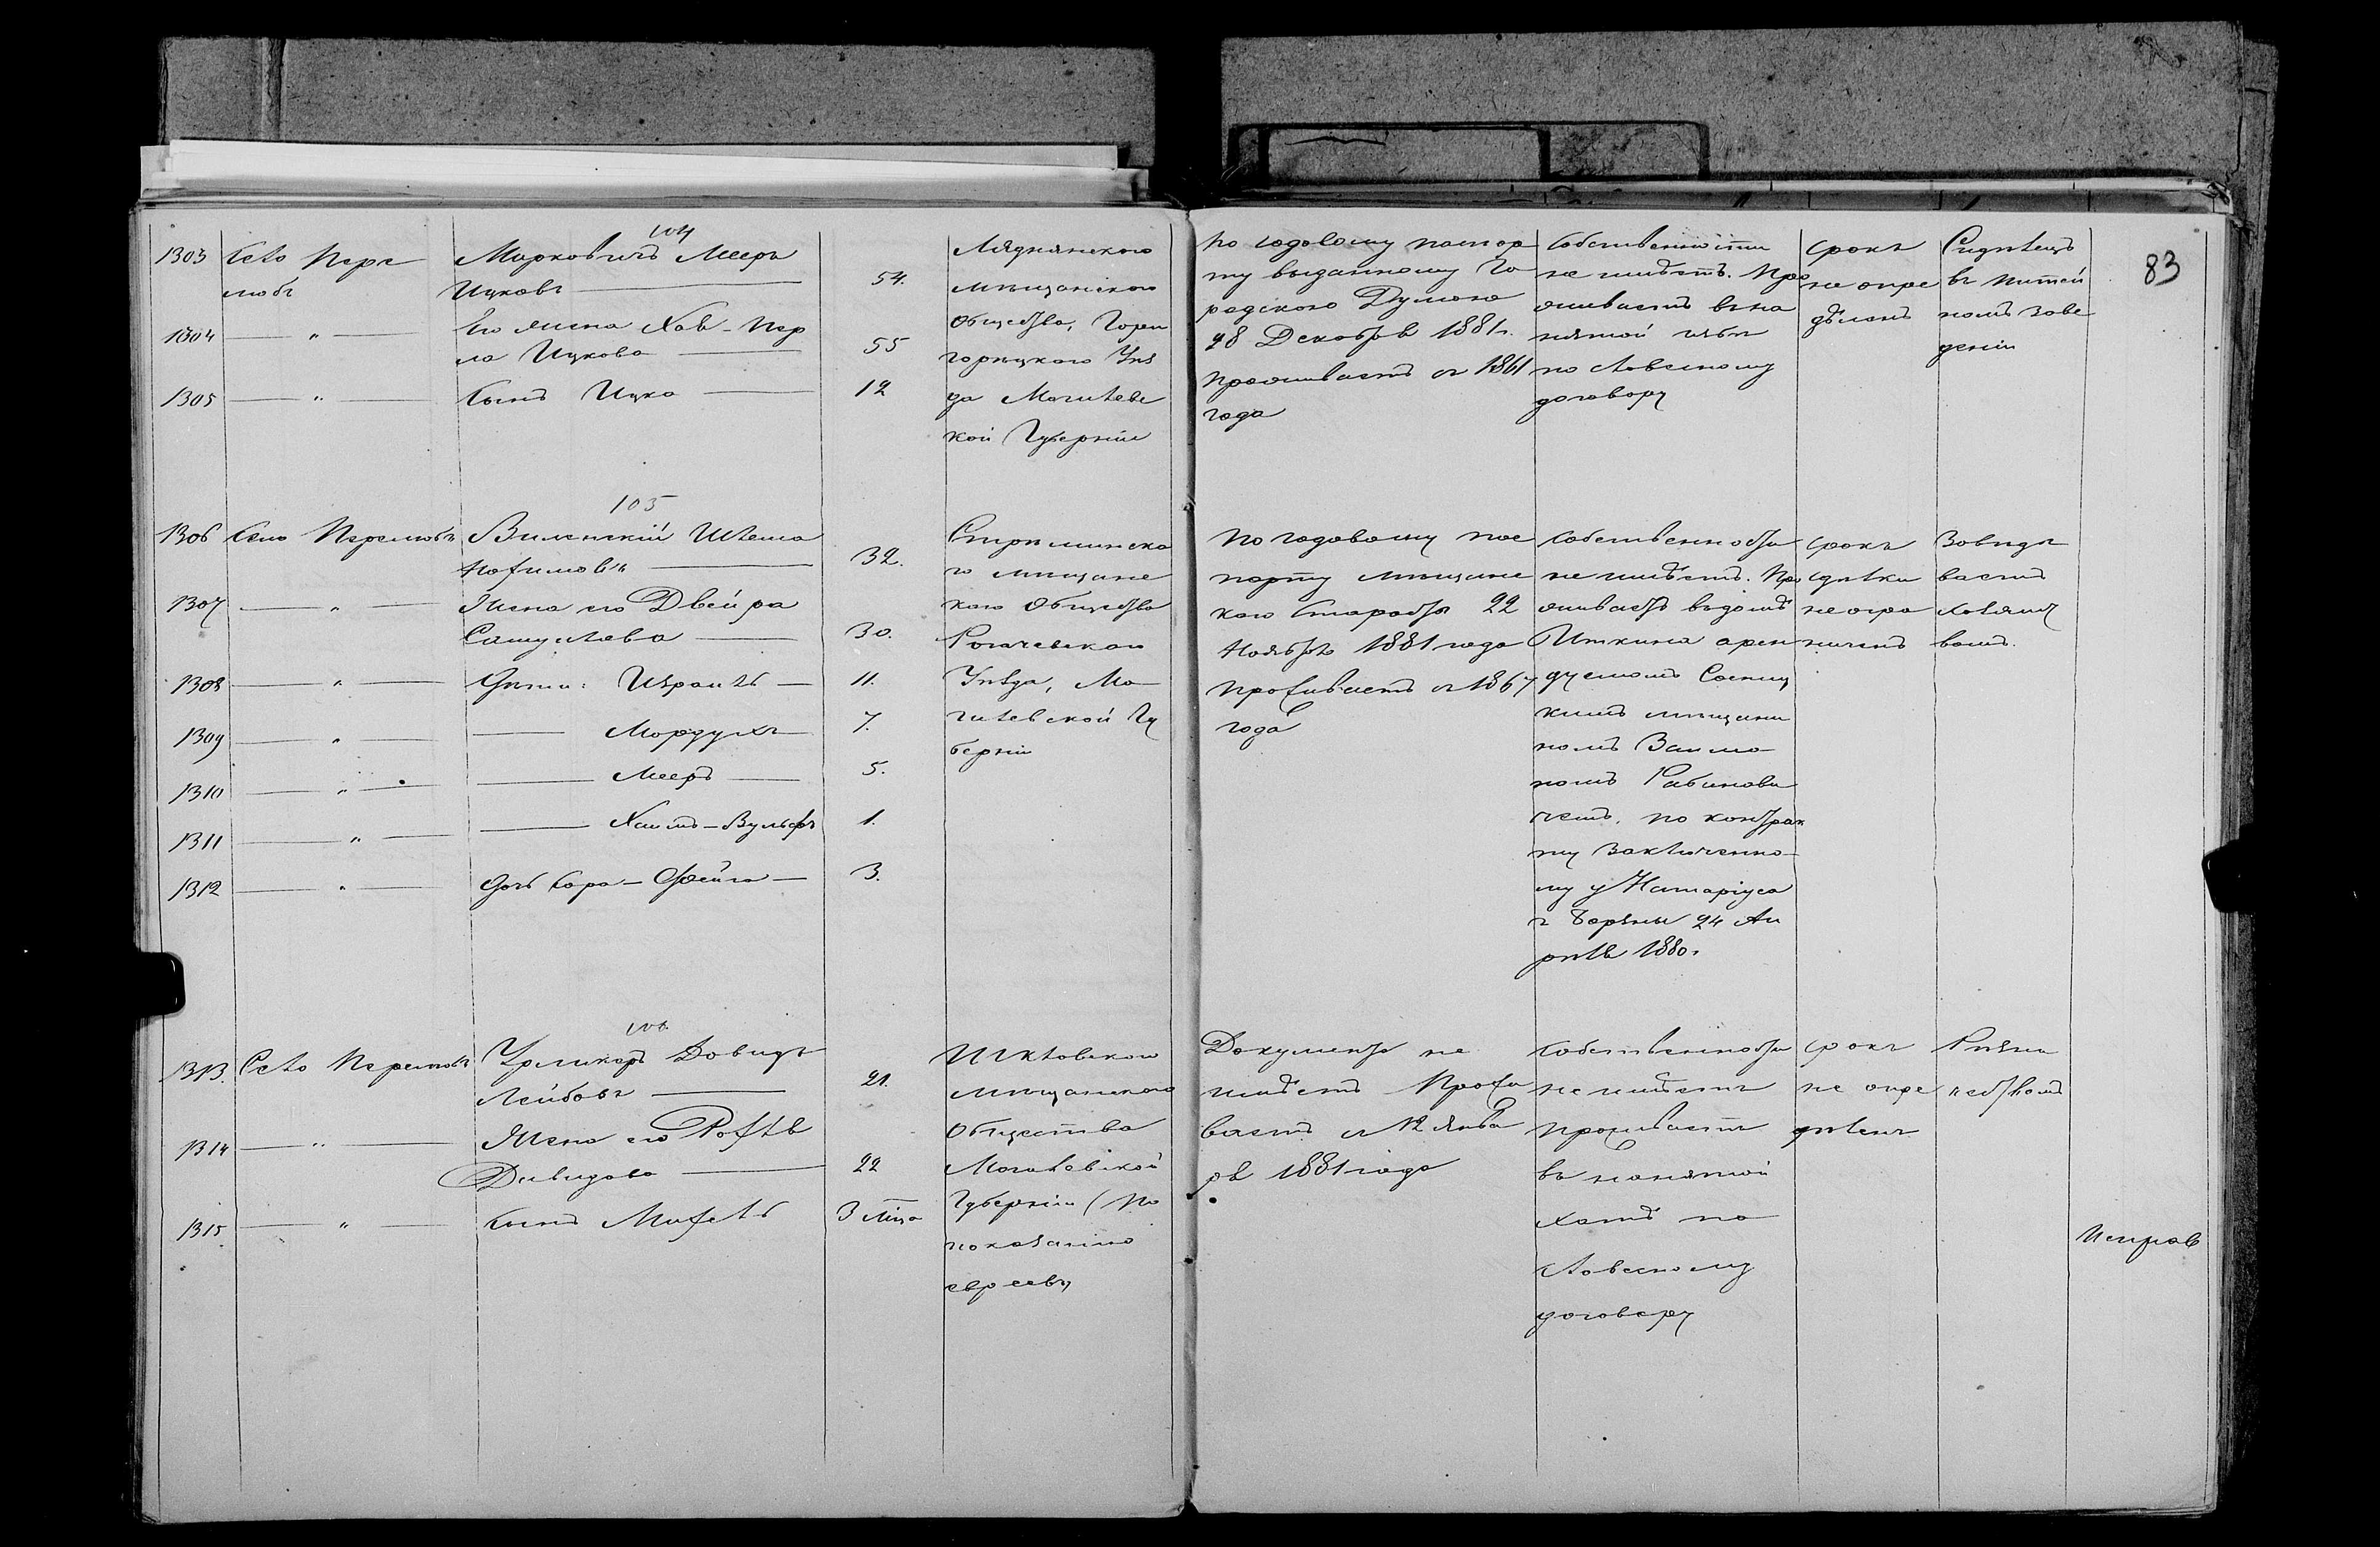 83
104
1303 Село Пере
любъ
Марковичъ Мееръ
Ицковъ
54.
Ляднянскаго
мѣщанского
Общества, Горы
горецкаго Уѣз
да Могилевс
кой Губерніи
По годовому паспор
ту выданному Го
родскою Думою
28 Декабря 1881 г.
проживаетъ съ 1861
года
Собственности
не имѣетъ. Про
живаетъ въ на
нятой избѣ
по словесному
договору
Срокъ
не опре
дѣленъ
Сидѣлецъ
въ питей
номъ заве
деніи
1304 — " —
Его жена Хая-Пер
ла Ицкова
55
1305 — " —
Сынъ Ицко
12
105
1306 Село Перелюбъ
Виленскій Шлема
Нохимовъ
32.
го мѣщанс
каго Общества
Рогачевскаго
Уѣзда, Мо
гилевской Гу
берніи
По годовому пас
порту мѣщанс
каго Старосты 22
Ноября 1881 года
Проживаетъ съ 1867
года
Собственности
не имѣетъ. Про
живаетъ въ домѣ
Иткина арен
дуемомъ Сосниц
кимъ мѣщани
номъ Залмо
номъ Рабинови
чемъ, по контрак
ту заключенно
му у Нотаріуса
г. Борзны 24 Ап
рѣля 1880 г.
Срокъ
сдѣлки
не огра
ниченъ
Завѣды
ваетъ
хозяйст
вомъ.
1307 — " —
Жена его Двейра
Самуилова
30.
1308 — " —
Дѣти: Израиль
11.
1309 — " —
Мордухъ
7.
1310 — " —
Мееръ
5.
1311 — " —
Хаимъ-Вульфъ
1.
1312 — " —
Дочь Сора-Фейга
3.
106
1313. Село Перелюбъ
Довидъ
Лейбовъ
21.
Шкловского
мѣщанского
Общества
Могилевской
Губерніи (по
показанію
евреевъ)
Документа не
имѣетъ Прожи
ваетъ съ 12 Янва
ря 1881 года
Собственности
не имѣетъ
проживаетъ
въ нанятой
хатѣ по
словесному
договору
Срокъ
не опре
дѣленъ
Рѣзни
чествомъ
1314 — " —
Жена его Рохля
Давидова
22
1315 — " —
Сынъ Михель
3 мѣца
Исправ